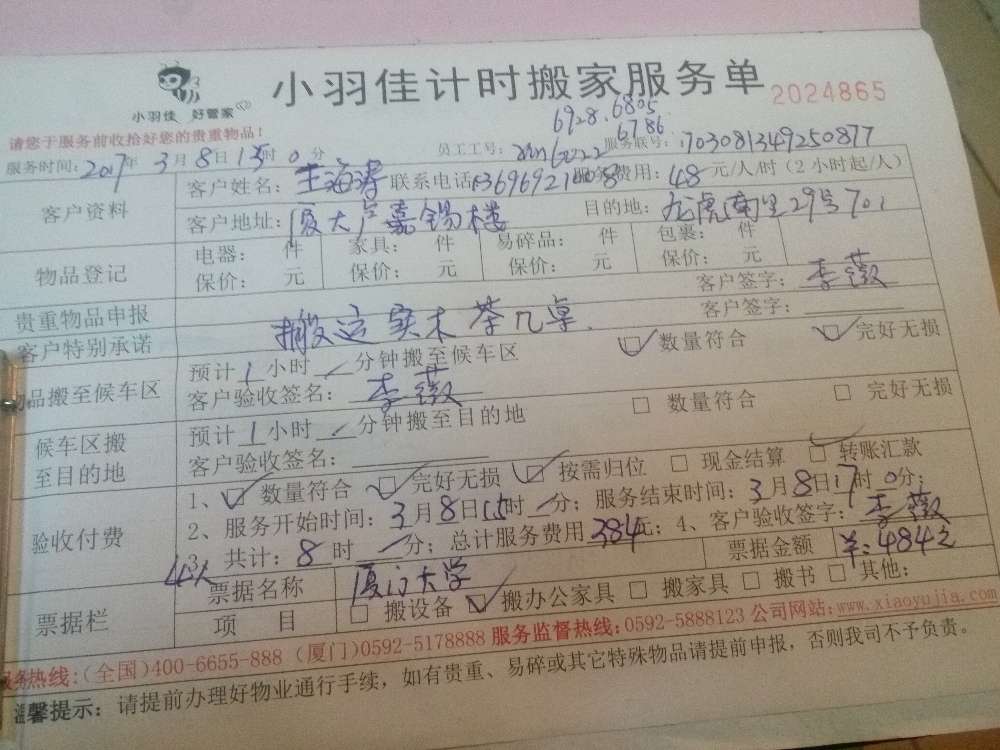 小羽佳 好管家
小羽佳计时搬家服务单 2024865
请您于服务前收拾好您的贵重物品！
6928.6805
6786
服务时间：2017年 3月8日15时0分 员工工号： 服务联号：1703081349250877
客户资料
客户姓名：王海涛 联系电话 服务费用：48元/人/时（2小时起/人）
客户地址：厦大 嘉锡楼 目的地：龙虎南里29号701
物品登记
电器： 件 家具： 件 易碎品： 件 包裹： 件
保价： 元 保价： 元 保价： 元 保价： 元
贵重物品申报 客户签字：李薇
客户特别承诺 搬运实木茶几桌. 客户签字：
品搬至候车区 预计1小时 分钟搬至候车区 数量符合 完好无损
客户验收签名：李薇
候车区搬至目的地
预计1小时 分钟搬至目的地 数量符合 完好无损
客户验收签名：
验收付费
1、数量符合 完好无损 按需归位 现金结算 转账汇款
2、服务开始时间：3月8日15时 分；服务结束时间：3月8日17时0分；
3、共计：8时 分；总计服务费用384元；4、客户验收签字：李薇
4人
票据栏
票据名称 厦门大学 票据金额 ￥：484元
项 目 搬设备 搬办公家具 搬家具 搬书 其他：
服务热线：(全国)400-6655-888 (厦门)0592-5178888 服务监督热线：0592-5888123 公司网站：www.xiaoyujia.com
温馨提示：请提前办理好物业通行手续，如有贵重、易碎或其它特殊物品请提前申报，否则我司不予负责。